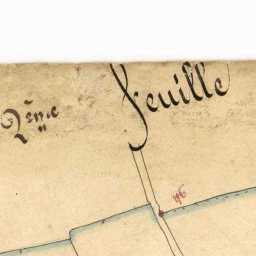 2ème Feuille
46